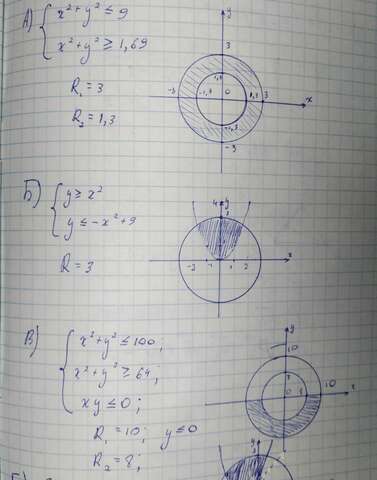 А) { x² + y² ≤ 9
x² + y² ≥ 1,69
R₁ = 3
R₂ = 1,3
y
3
-3 0 3 x
-3
Б) { y ≥ x²
y ≤ -x² + 9
R = 3
y
x
В) { x² + y² ≤ 100;
x² + y² ≥ 64;
xy ≤ 0;
R₁ = 10; y ≤ 0
R₂ = 8;
y
10
0 10 x
y